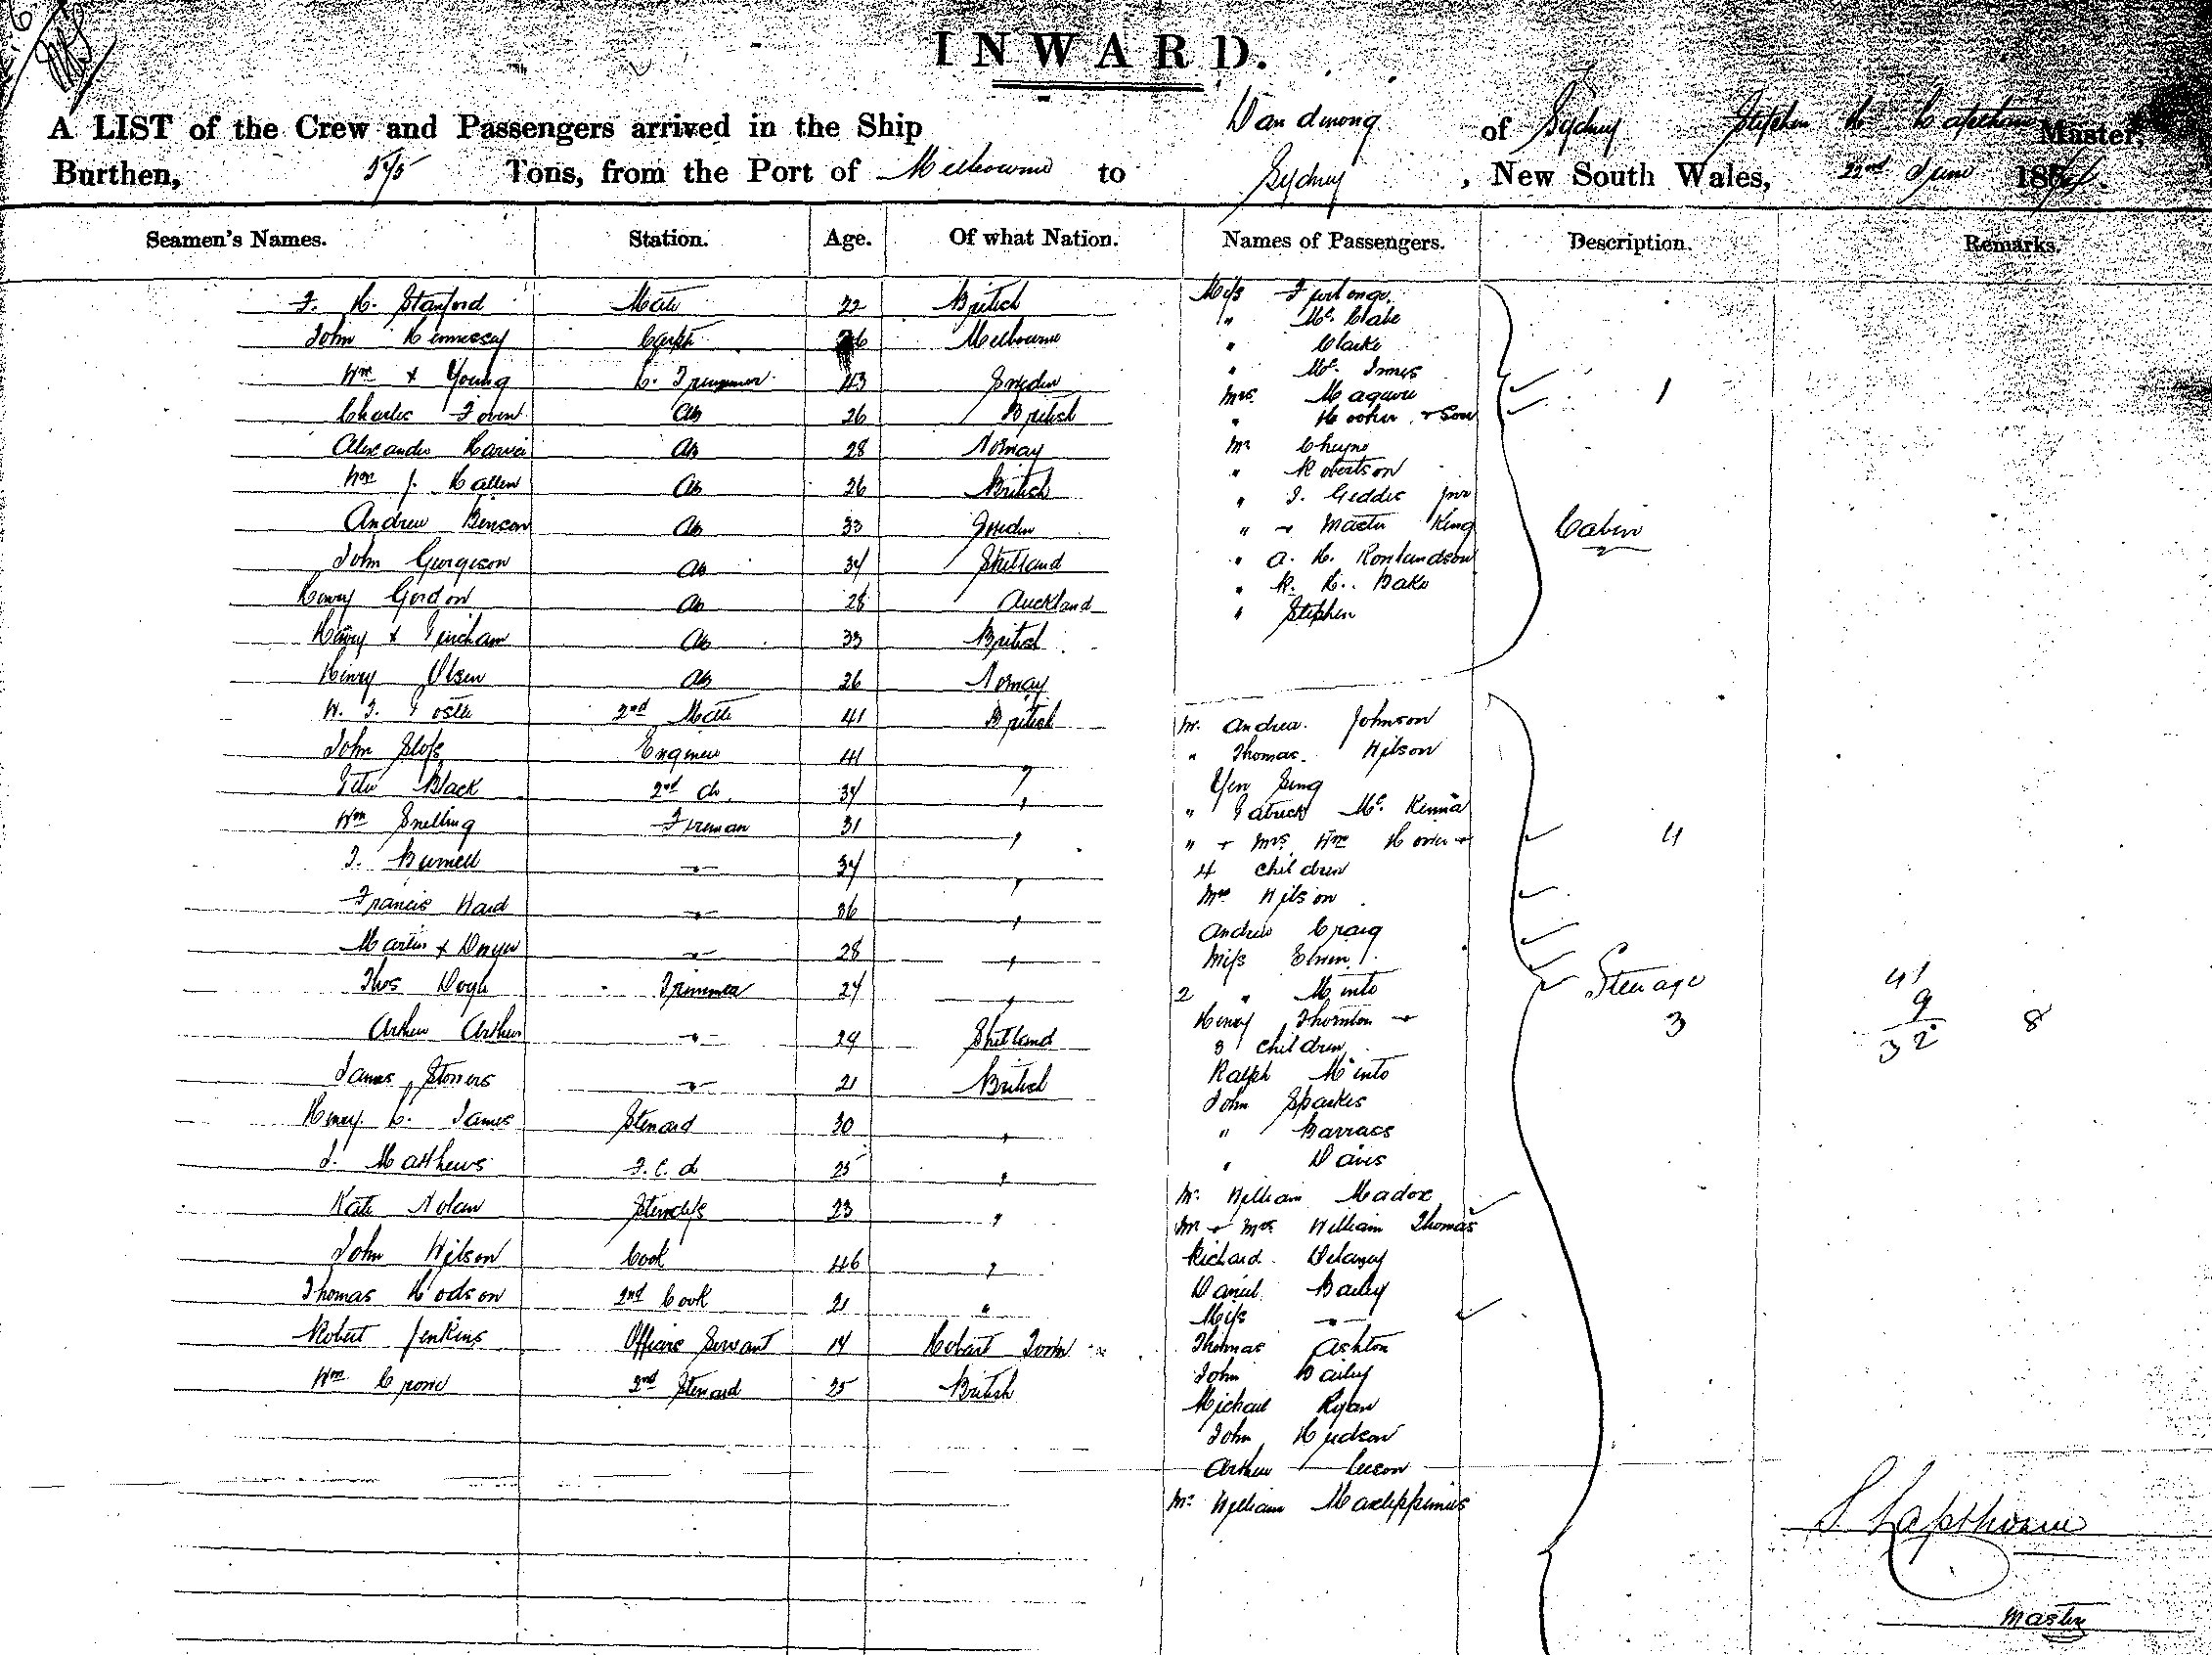 INWARD.
A LIST of the Crew and Passengers arrived in the Ship Dandenong of Sydney Stephen Master,
Burthen, 575 Tons, from the Port of Melbourne to Sydney, New South Wales, 22nd June 188
Seamen's Names. Station. Age. Of what Nation. Names of Passengers. Description. Remarks.
F. H. Stanford Mate 22 British
John Hennessy Carpt 26 Melbourne
Wm + Young L. Trimmer 43 Sweden
Charles AB 26 British
Alexander AB 28 Norway
Wm J. Callen AB 26 British
Andrew Benson AB 33 Sweden
John Georgeson AB 34 Shetland
Henry Gordon AB 28 Auckland
Henry + AB 33 British
Henry Olsen AB 26 Norway
W. T. 2nd Mate 41 British
John Engineer 41 "
Peter Black 2nd do 34 "
Wm Snelling Fireman 31 "
Burnell -"- 34 "
Francis Ward -"- 36 "
Martin + Dwyer -"- 28 "
Thos Doyle Trimmer 24 "
Arthur Arthur -"- 29 Shetland
James -"- 21 British
Henry C. James Steward 30 "
Matthews F.C. do 25 "
Kate Nolan Stewdess 23 "
John Wilson Cook 46 "
Thomas Hodson 2nd Cook 21 "
Robert Jenkins Officers Servant 14 Hobart Town
Wm 2nd Steward 25 British
Miss Furlonge
" McCabe
" Clarke
" McInnes
Mrs Maguire 1
" Hooker + Son
Mr Cheyne
" Robertson
" Geddes jnr
" + Master King
" A. H. Rowlandson
" Bake
" Stephen
Cabin
Mr Andrew Johnson
" Thomas Wilson
Yen Sing
" Patrick McKenna
" + Mrs Wm + 4
4 Children
Mrs Wilson
Andrew Craig
Miss
2 " Minto
Henry Thornton +
3 Children
Steerage
3
41
9
32
8
Ralph Minto
John Sparkes
" Barrass
" Davis
Mr William Madox
Mr + Mrs William Thomas
Richard Delaney
Daniel Bailey
Miss -"-
Thomas Ashton
John Bailey
Michael Ryan
John Hudson
Arthur
Mr William
S. Lapthorne
Master